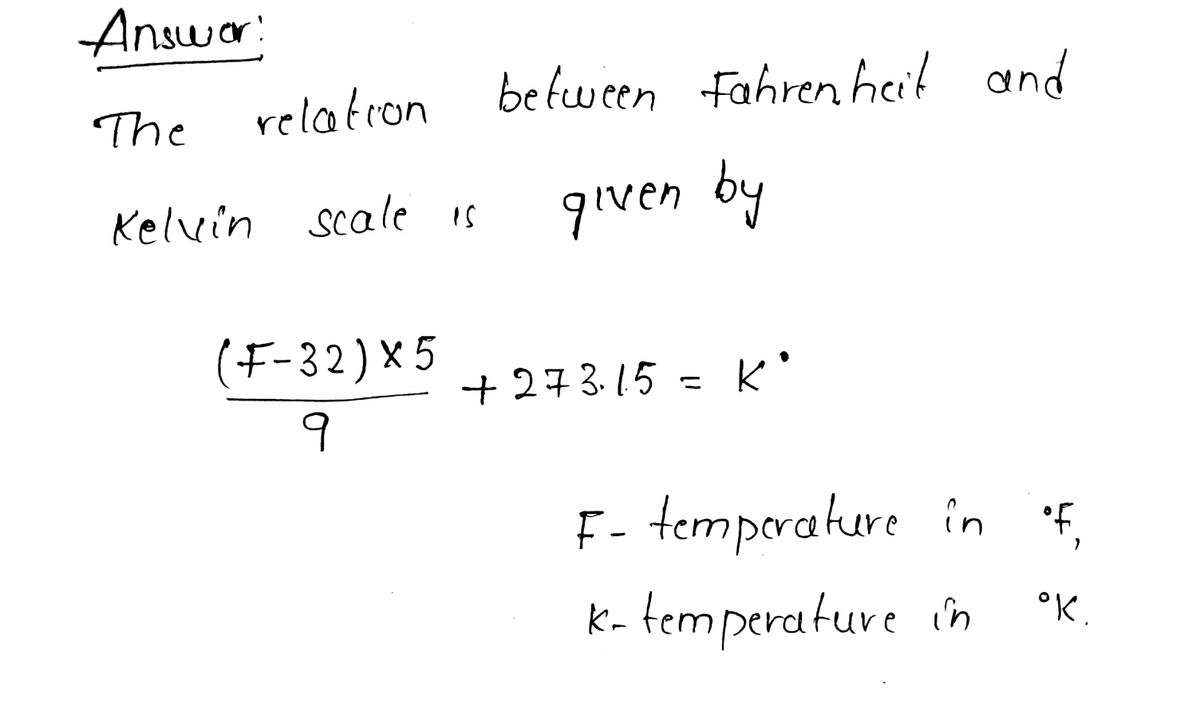 Answer:
The relation between Fahrenheit and
Kelvin scale is given by
(F-32)×5
9
+ 273.15 = K°
F - temperature in °F,
K - temperature in °K.